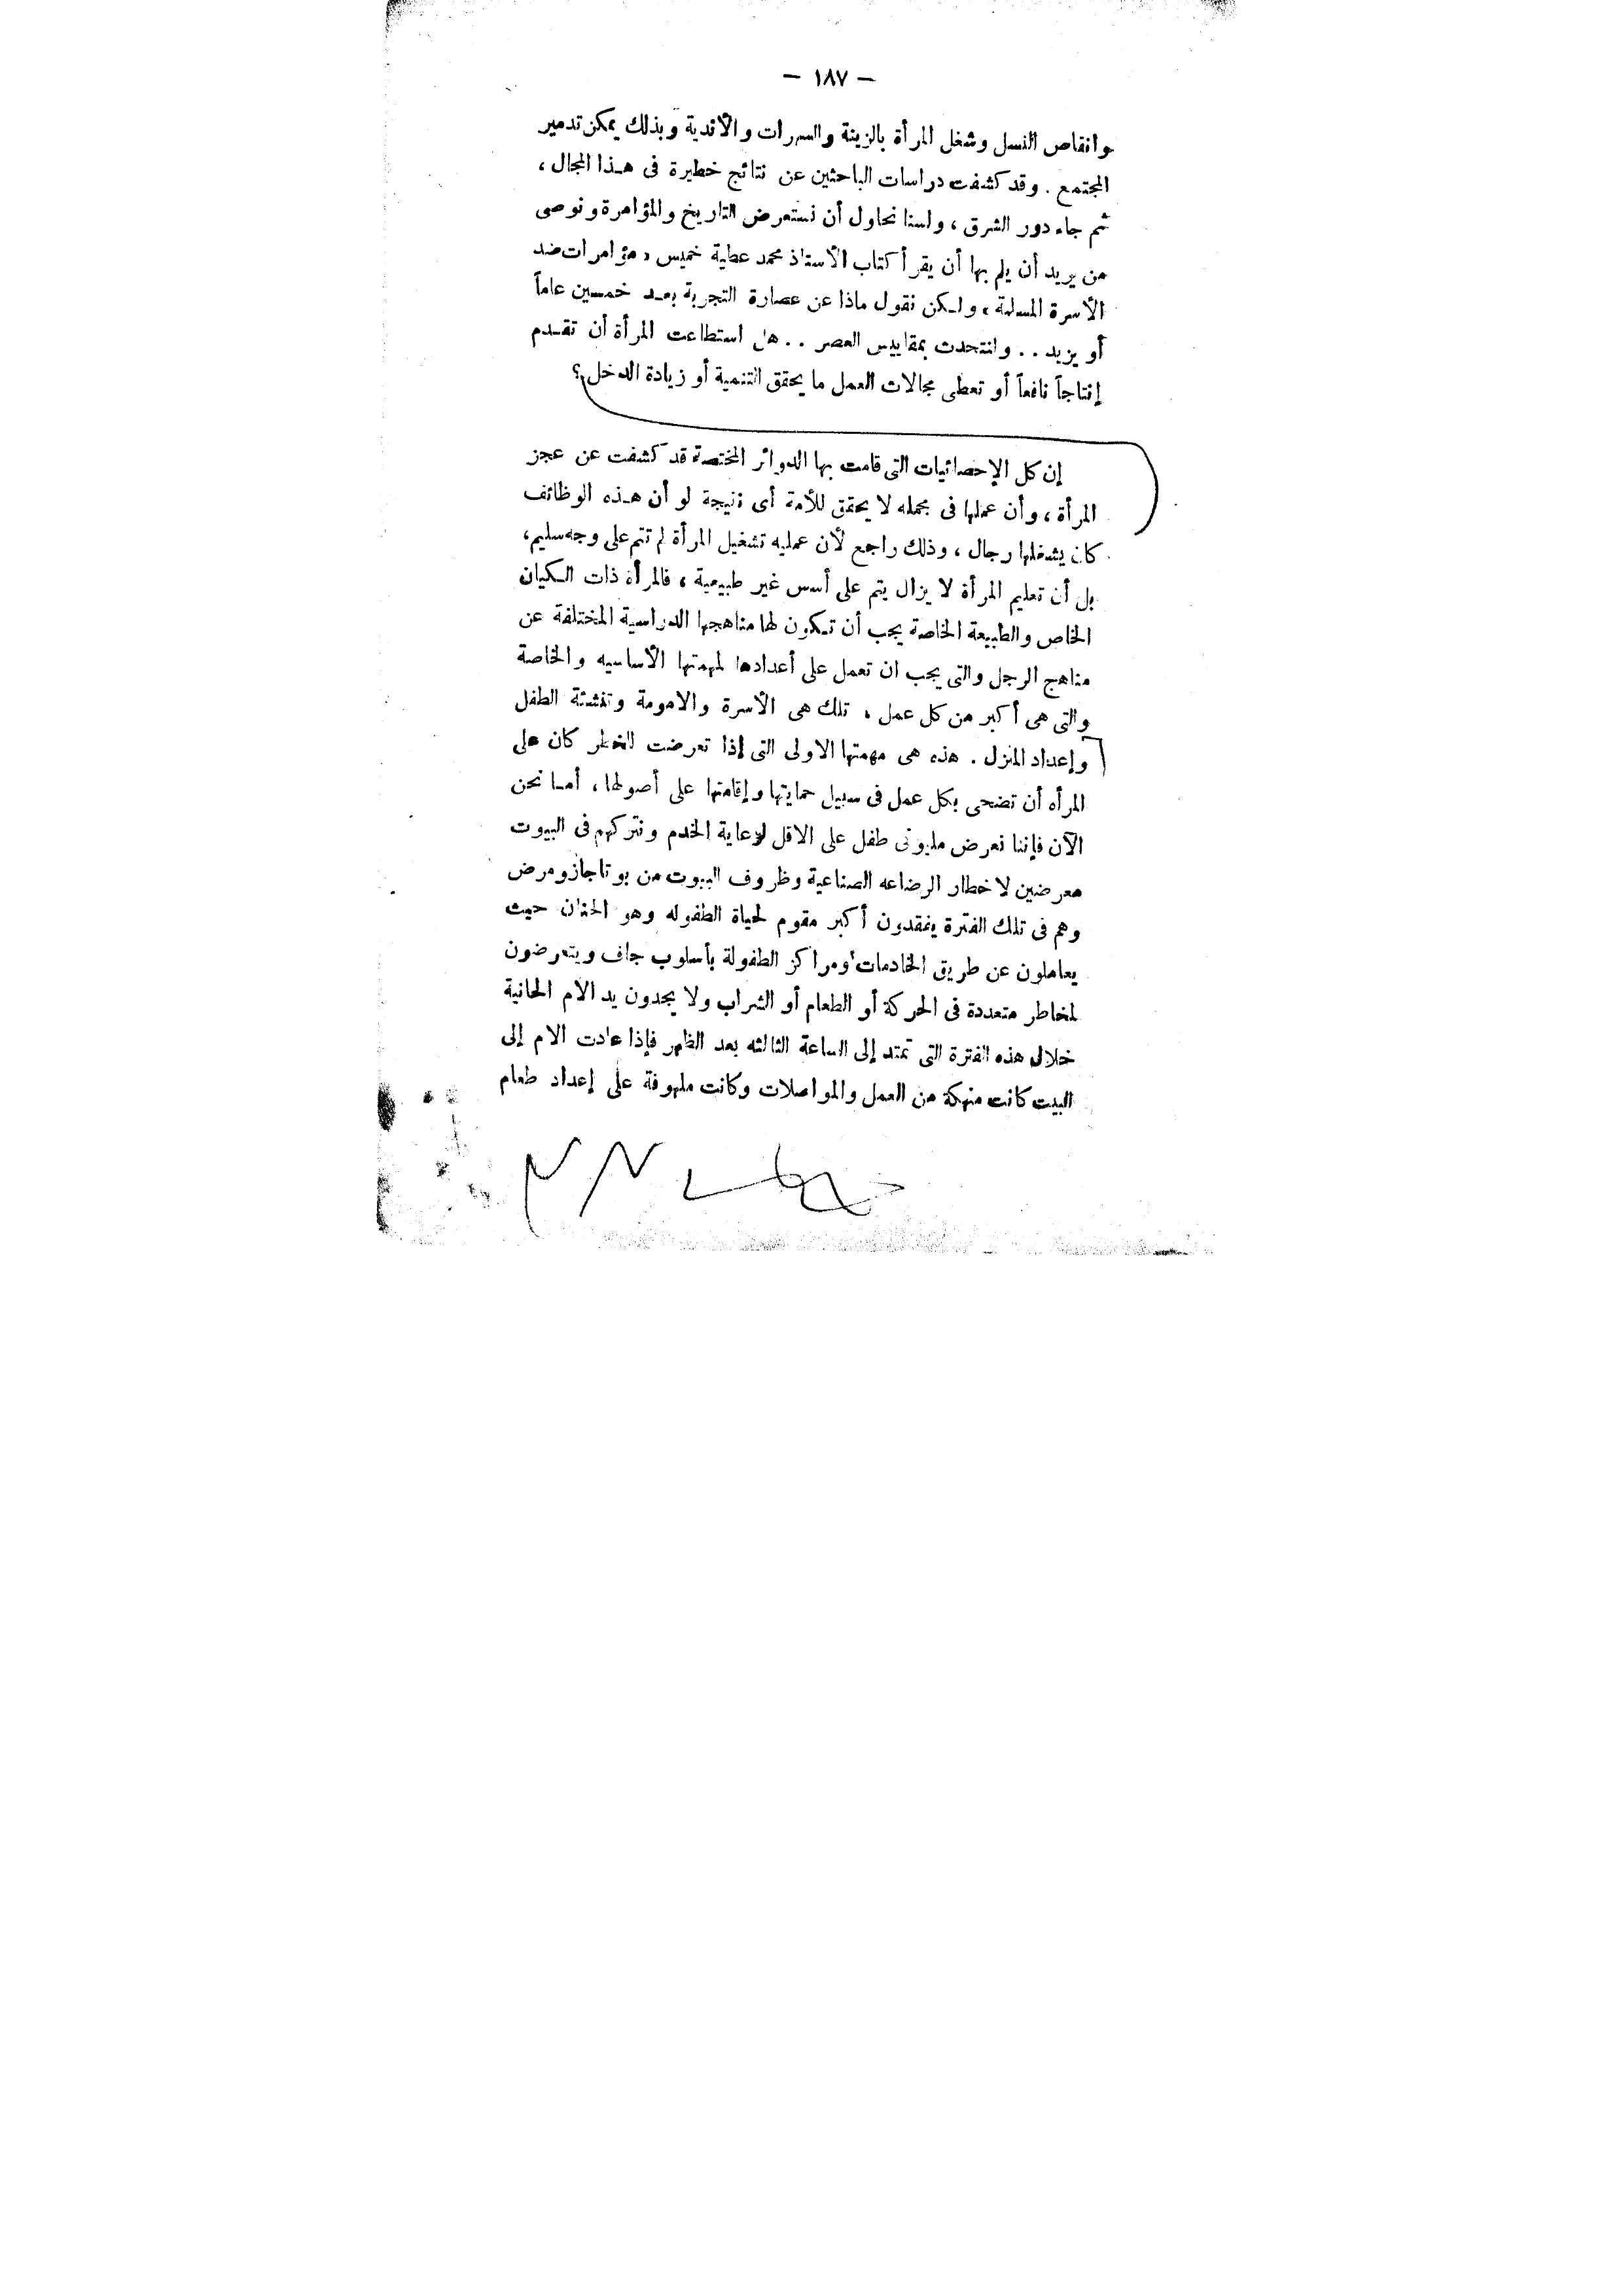 — ١٨٧ —
وانقاص النسل وشغل المرأة بالزينة والسهرات والأندية وبذلك يمكن تدمير
المجتمع . وقد كشفت دراسات الباحثين عن نتائج خطيرة فى هذا المجال ،
ثم جاء دور الشرق ، ولسنا نحاول أن نستعرض التاريخ والمؤامرة ونوصى
من يريد أن يلم بها أن يقرأ كتاب الأستاذ محمد عطية خميس « مؤامرات ضد
الأسرة المسلمة ، ولكن نقول ماذا عن عصارة التجربة بعد خمسين عاماً
أو يزيد . . ولنتحدث بمقاييس العصر . . هل استطاعت المرأة أن تقدم
إنتاجاً نافعاً أو تعطى مجالات العمل ما يحقق التنمية أو زيادة الدخل ؟
إن كل الإحصائيات التى قامت بها الدوائر المختصة قد كشفت عن عجز
المرأة ، وأن عملها فى مجمله لا يحقق للأمة أى نتيجة لو أن هذه الوظائف
كان يشغلها رجال ، وذلك راجع لأن عمليه تشغيل المرأة لم تتم على وجه سليم،
بل أن تعليم المرأة لا يزال يتم على أسس غير طبيعية ، فالمرأة ذات الكيان
الخاص والطبيعة الخاصة يجب أن تكون لها مناهجها الدراسية المختلفة عن
مناهج الرجل والتى يجب ان تعمل على أعدادها لمهمتها الأساسيه والخاصة
والتى هى أكبر من كل عمل ، تلك هى الأسرة والامومة وتنشئة الطفل
وإعداد المنزل . هذه هى مهمتها الاولى التى إذا تعرضت للخطر كان على
المرأه أن تضحى بكل عمل فى سبيل حمايتها وإقامتها على أصولها ، أما نحن
الآن فإننا نعرض مليونى طفل على الاقل لرعاية الخدم ونتركهم فى البيوت
معرضين لاخطار الرضاعه الصناعية وظروف البيوت من بوتاجاز ومرض
وهم فى تلك الفترة يفقدون أكبر مقوم لحياة الطفوله وهو الحنان حيث
يعاملون عن طريق الخادمات ومراكز الطفولة بأسلوب جاف ويتعرضون
لمخاطر متعددة فى الحركة أو الطعام أو الشراب ولا يجدون يد الام الحانية
خلال هذه الفترة التى تمتد إلى الساعة الثالثه بعد الظهر فإذا عادت الام إلى
البيت كانت منهكة من العمل والمواصلات وكانت ملهوفة على إعداد طعام